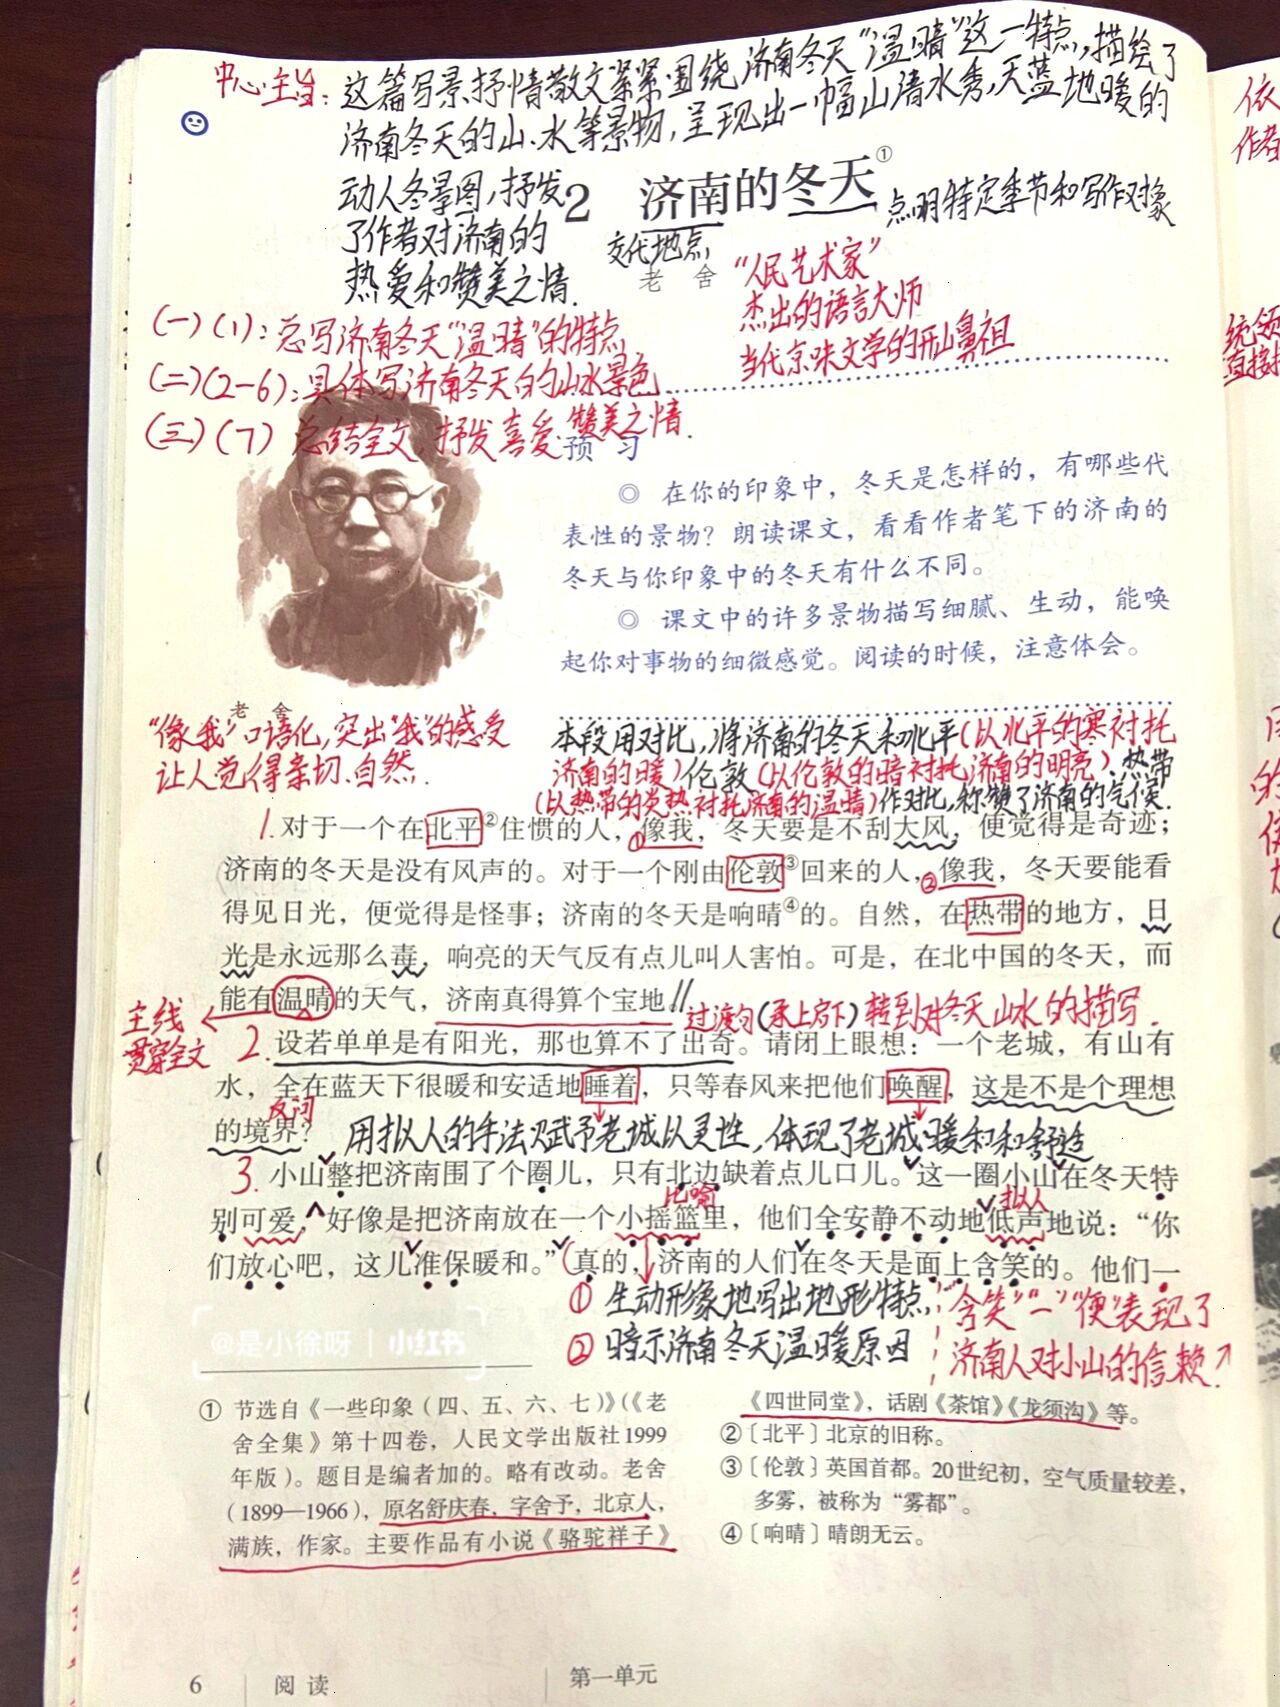 中心主旨：这篇写景抒情散文紧紧围绕济南冬天“温晴”这一特点，描绘了
济南冬天的山、水等景物，呈现出一幅山清水秀，天蓝地暖的
动人冬景图，抒发
了作者对济南的
热爱和赞美之情.
2 济南的冬天①
点明特定季节和写作对象
交代地点
老 舍
“人民艺术家”
杰出的语言大师
当代京味文学的开山鼻祖
(一)(1)：总写济南冬天“温晴”的特点
(二)(2-6)：具体写济南冬天的山水景色
(三)(7) 总结全文，抒发喜爱、赞美之情.
预 习
◎ 在你的印象中，冬天是怎样的，有哪些代
表性的景物？朗读课文，看看作者笔下的济南的
冬天与你印象中的冬天有什么不同。
◎ 课文中的许多景物描写细腻、生动，能唤
起你对事物的细微感觉。阅读的时候，注意体会。
老 舍
“像我”口语化，突出“我”的感受
让人觉得亲切、自然.
本段用对比，将济南的冬天和北平(以北平的寒衬托
济南的暖)伦敦(以伦敦的暗衬托济南的明亮).热带
(以热带的炎热衬托济南的温晴)作对比，称赞了济南的气候.
1.对于一个在北平②住惯的人，①像我，冬天要是不刮大风，便觉得是奇迹；
济南的冬天是没有风声的。对于一个刚由伦敦③回来的人，②像我，冬天要能看
得见日光，便觉得是怪事；济南的冬天是响晴④的。自然，在热带的地方，日
光是永远那么毒，响亮的天气反有点儿叫人害怕。可是，在北中国的冬天，而
能有温晴的天气，济南真得算个宝地。
过渡句(承上启下)转到对冬天山水的描写.
主线
贯穿全文
2.设若单单是有阳光，那也算不了出奇。请闭上眼想：一个老城，有山有
水，全在蓝天下很暖和安适地睡着，只等春风来把他们唤醒，这是不是个理想
的境界？
反问
用拟人的手法赋予老城以灵性，体现了老城暖和和舒适
3.小山整把济南围了个圈儿，只有北边缺着点儿口儿。这一圈小山在冬天特
比喻
拟人
别可爱，好像是把济南放在一个小摇篮里，他们全安静不动地低声地说：“你
们放心吧，这儿准保暖和。”(真的，济南的人们在冬天是面上含笑的。他们一
① 生动形象地写出地形特点
② 暗示济南冬天温暖原因
“含笑”“一”“便”表现了
济南人对小山的信赖.
@是小徐呀 | 小红书
① 节选自《一些印象（四、五、六、七）》（《老
舍全集》第十四卷，人民文学出版社1999
年版）。题目是编者加的。略有改动。老舍
（1899—1966），原名舒庆春，字舍予，北京人，
满族，作家。主要作品有小说《骆驼祥子》
《四世同堂》，话剧《茶馆》《龙须沟》等。
②〔北平〕北京的旧称。
③〔伦敦〕英国首都。20世纪初，空气质量较差，
多雾，被称为“雾都”。
④〔响晴〕晴朗无云。
6 阅 读 第一单元
依
作者
统领
直接